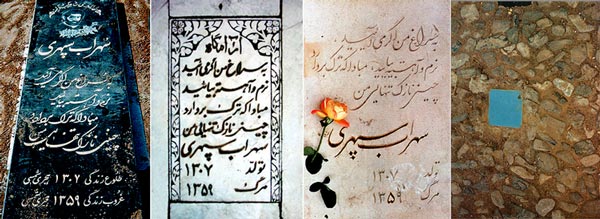 سهراب سپهری
به سراغ من اگر می آیید
نرم و آهسته بیایید
مبادا که ترک بردارد
چینی نازک تنهایی من
طلوع زندگی ۱۳۰۷ هجری شمسی
غروب زندگی ۱۳۵۹ هجری شمسی
آرامگاه
به سراغ من اگر می آیید
نرم و آهسته بیایید
مبادا که ترک بردارد
چینی نازک تنهایی من
سهراب سپهری
تولد ۱۳۰۷
مرگ ۱۳۵۹
به سراغ من اگر می آیید
نرم و آهسته بیایید مبادا که ترک بردارد
چینی نازک تنهایی من
سهراب سپهری
تولد ۱۳۰۷
مرگ ۱۳۵۹